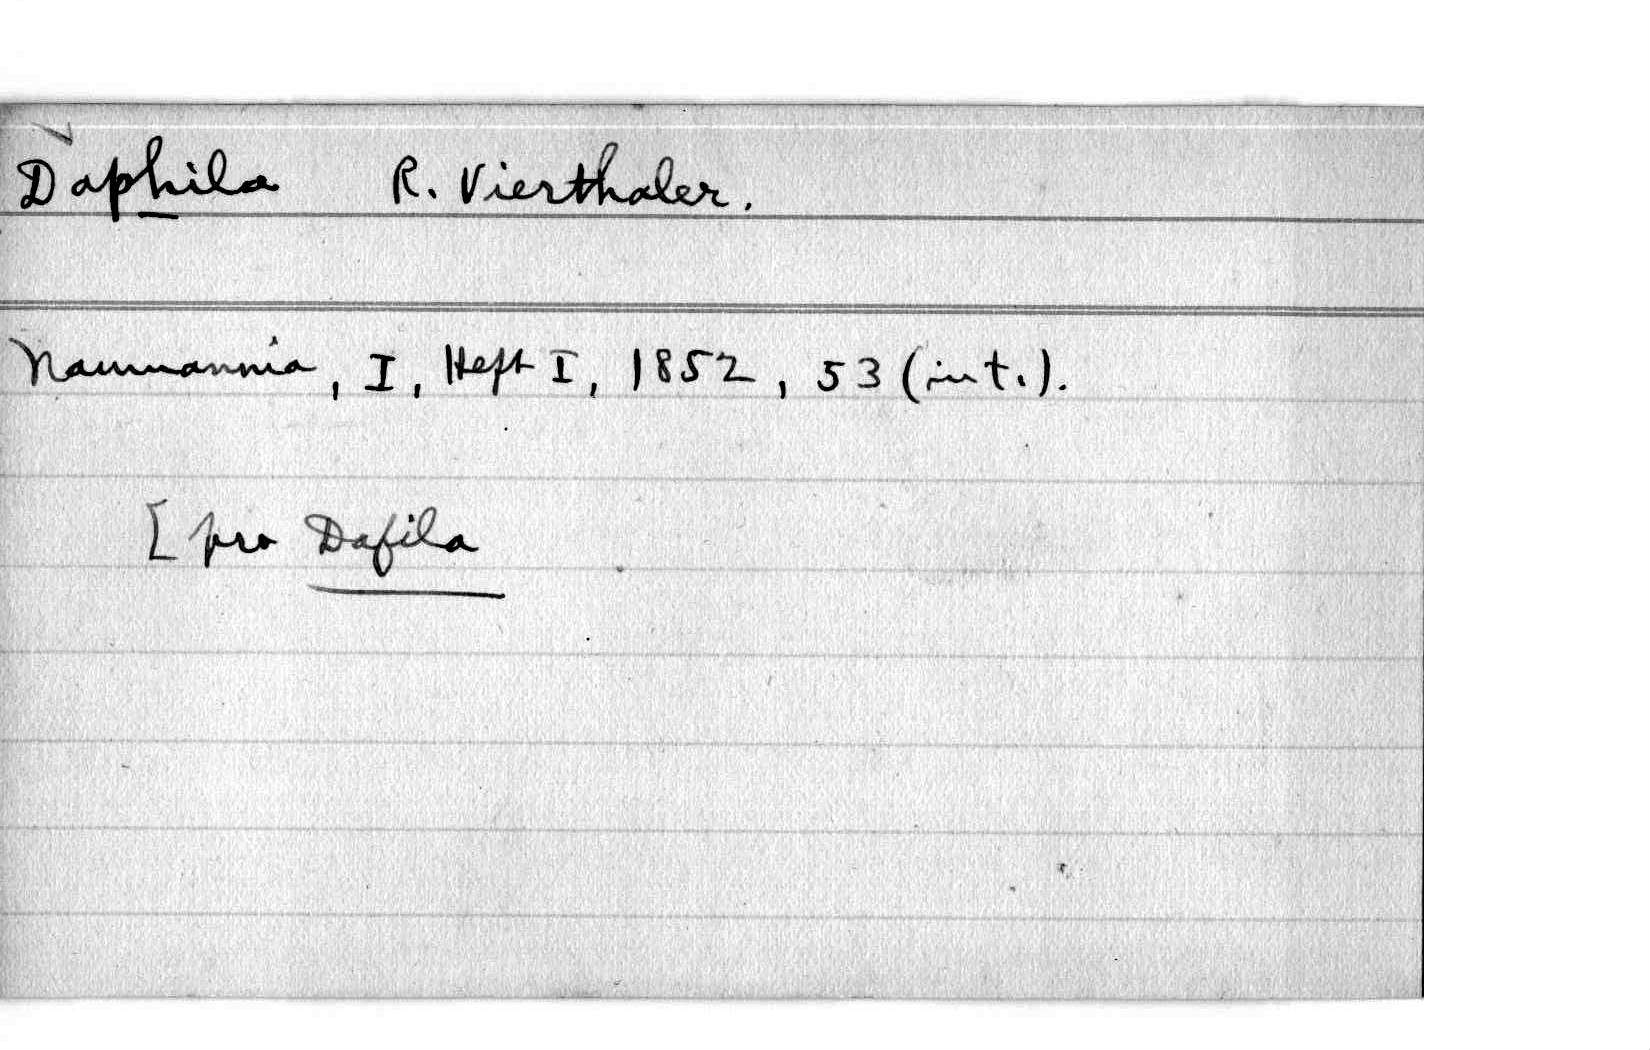 Daphila R. Vierthaler.
Naumannia, I, Heft I, 1852, 53 (int.).
[ pro Dafila